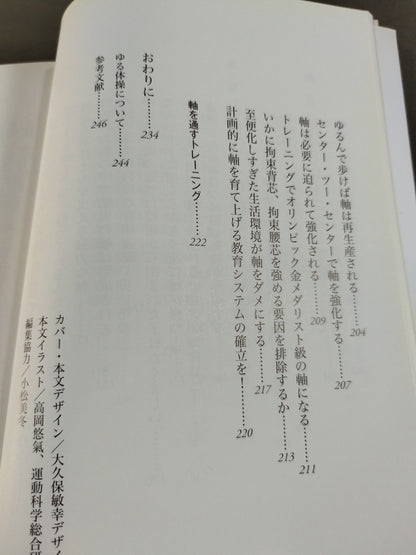 ゆるんで歩けば軸は再生産される 204
センター・ツー・センターで軸を強化する 207
軸は必要に迫られて強化される 209
トレーニングでオリンピック金メダリスト級の軸になる 211
いかに拘束背芯、拘束腰芯を強める要因を排除するか 213
至便化しすぎた生活環境が軸をダメにする 217
計画的に軸を育て上げる教育システムの確立を! 220
軸を通すトレーニング 222
おわりに 234
ゆる体操について 244
参考文献 246
カバー・本文デザイン/大久保敏幸デザイ
本文イラスト/高岡悠氣、運動科学総合研
編集協力/小松美冬